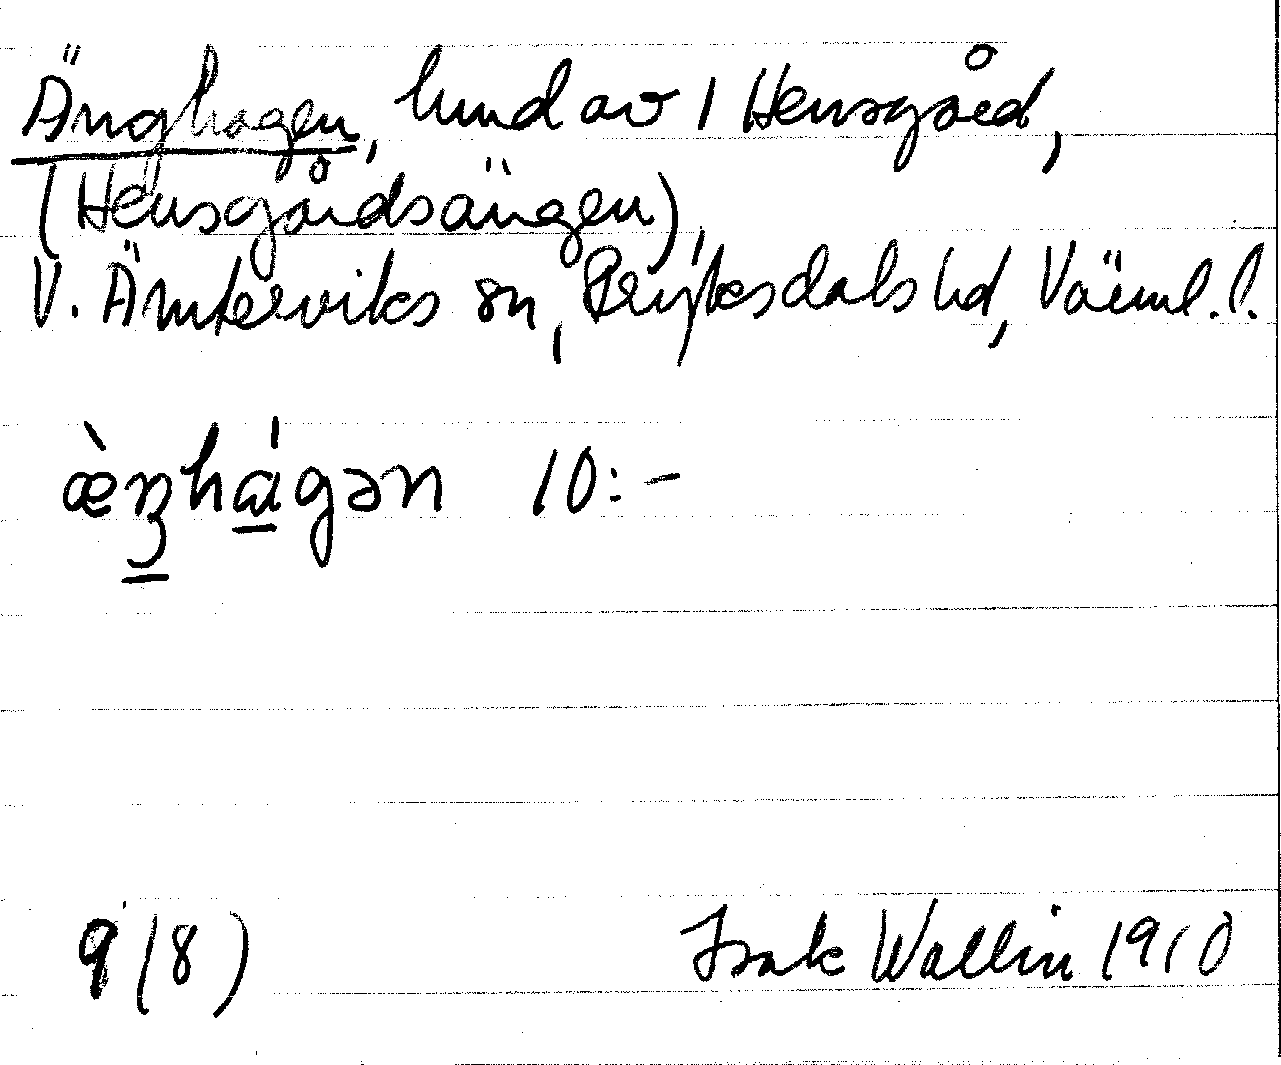 Änghagen, hmd av 1 Hensgård,
(Hensgårdsängen)
V. Ämterviks sn, Fryksdals hd, Värml. l.
æ̀ŋhágən 10:-
9 (8) Isak Wallin 1910